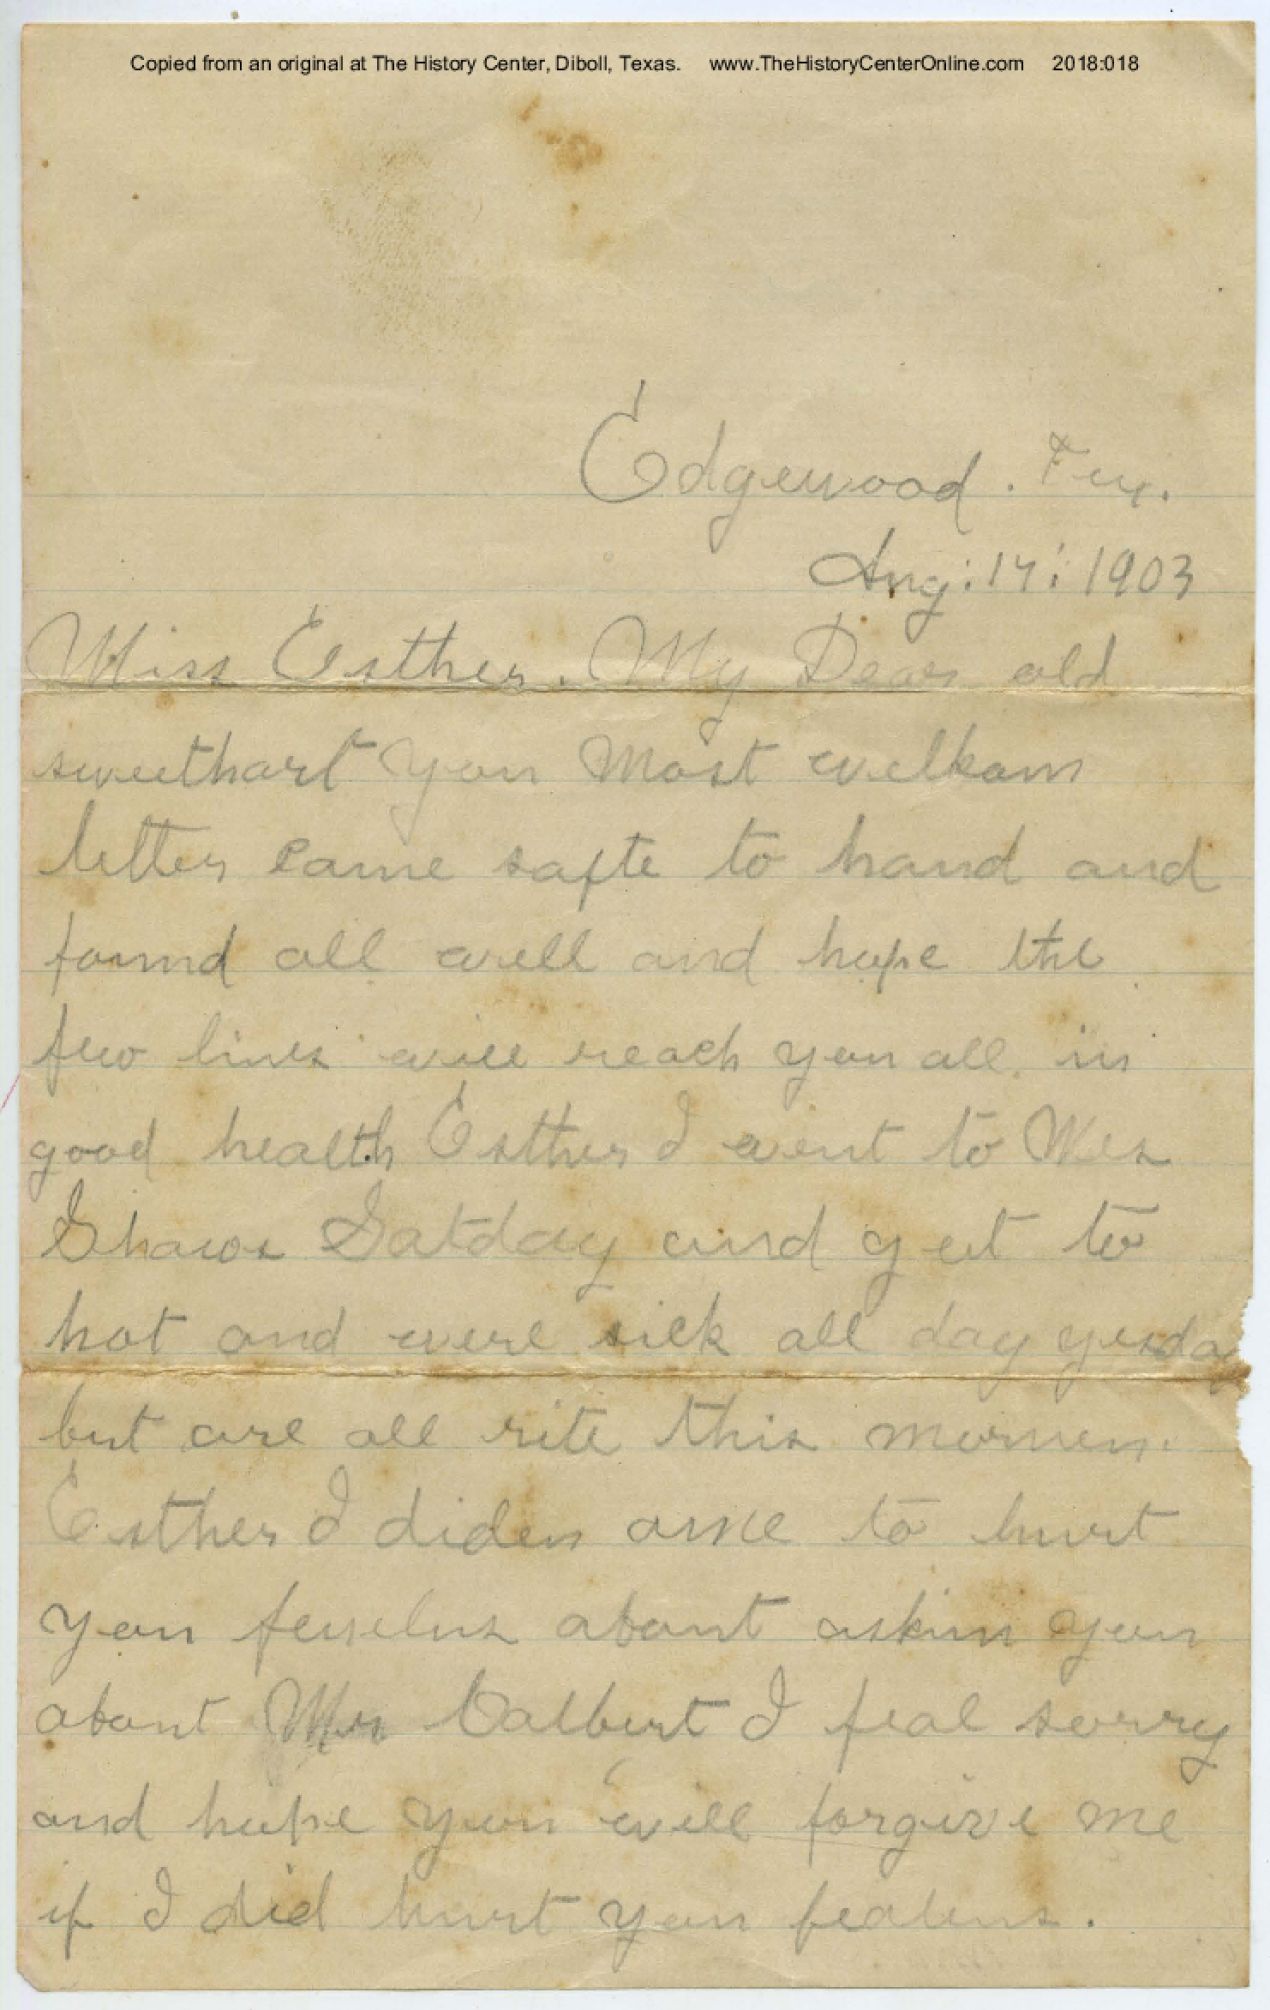 Copied from an original at The History Center, Diboll, Texas. www.TheHistoryCenterOnline.com 2018:018
Edgewood. Tex.
Aug: 17: 1903
Miss Esther. My Dear old
sweethart you most welkom
letter came safte to hand and
found all well and hope the
few lines will reach you all in
good health Esther I went to Wes
Shaws Satday and get to
hot and were sick all day yesday
but are all rite this mornen.
Esther I diden to hurt
you about askin you
about Mr Calbert I feal sorry
and hope you will forgive me
if I did hurt you fealens.